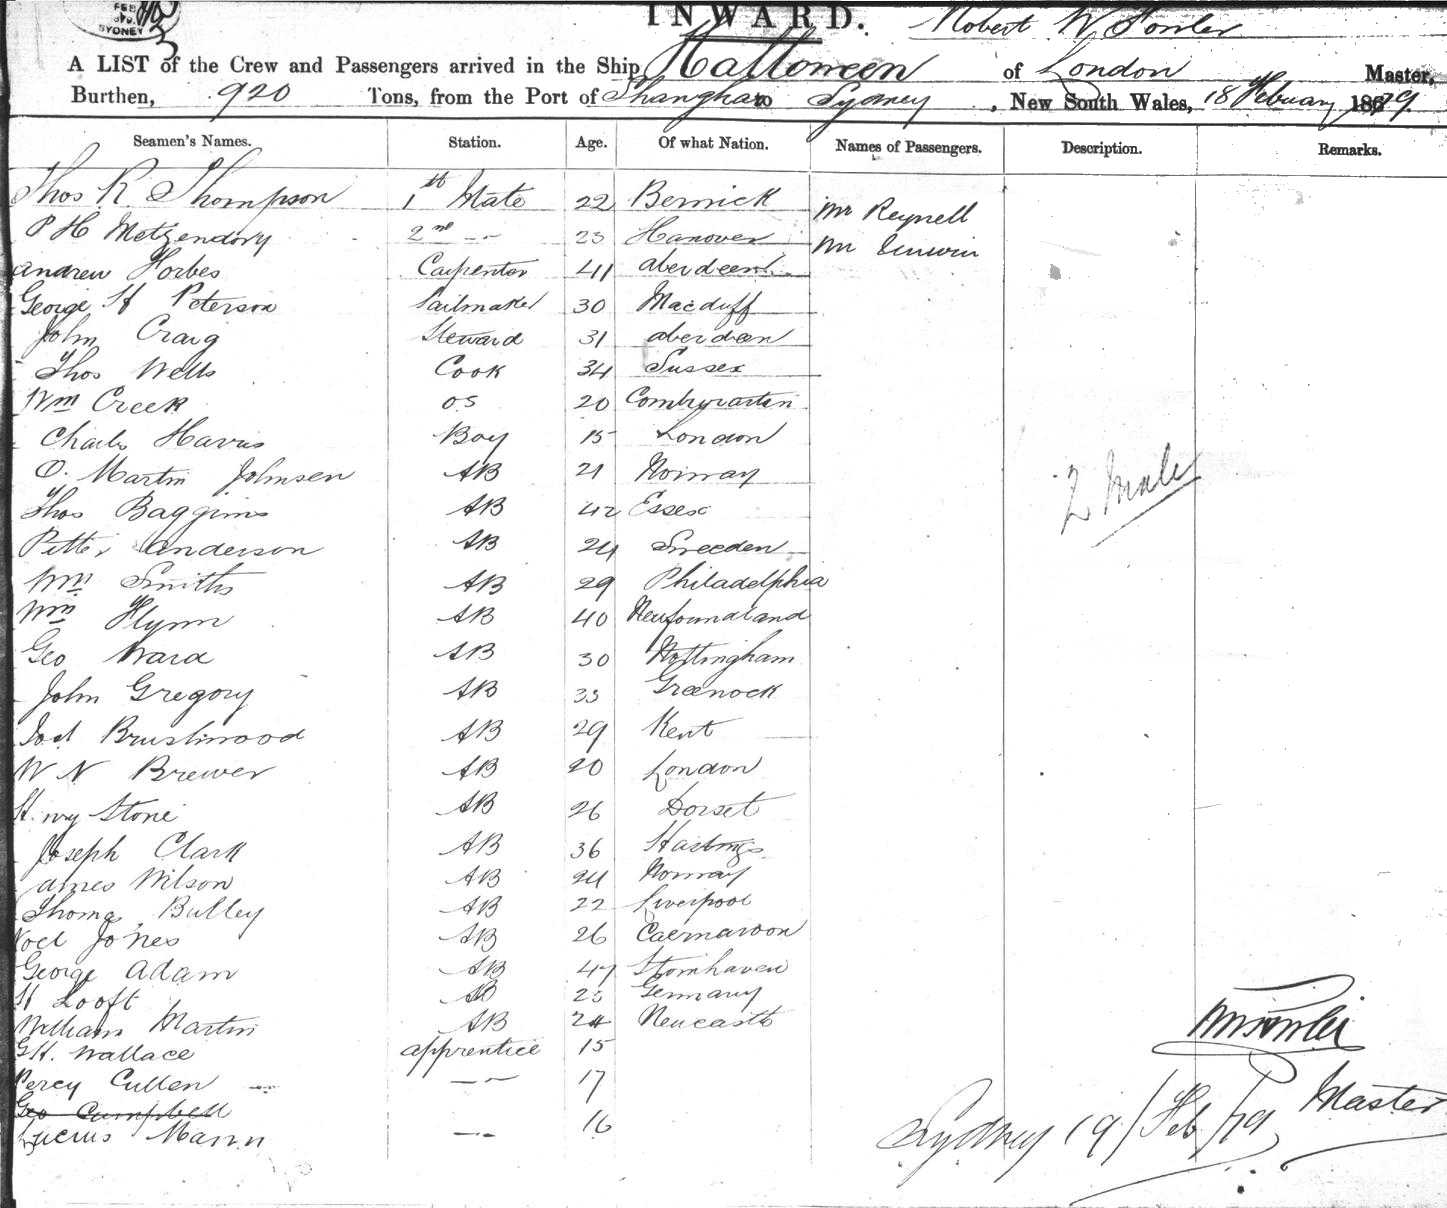 FEB
SYDNEY
INWARD.
Robert W Fowler
A LIST of the Crew and Passengers arrived in the Ship Halloween of London Master,
Burthen, 920 Tons, from the Port of Shanghai to Sydney, New South Wales, 18 February 1879.
Seamen's Names. Station. Age. Of what Nation. Names of Passengers. Description. Remarks.
Thos R. Thompson 1st Mate 22 Berwick Mr Reynell
P H Metzendorf 2nd -"- 23 Hanover Mr Unwin
Andrew Forbes Carpenter 41 Aberdeen
George H Peterson Sailmaker 30 Macduff
John Craig Steward 31 Aberdeen
Thos Wells Cook 34 Sussex
Wm Creek OS 20
Charles Harris Boy 15 London
O. Martin Johnsen AB 21 Norway
Thos Baggins AB 42 Essex
2 Male
Petter Anderson AB 24 Sweeden
Wm Smiths AB 29 Philadelphia
Wm Flynn AB 40 Newfoundland
Geo Ward AB 30 Nottingham
John Gregory AB 33 Greenock
Brushwood AB 29 Kent
W N Brewer AB 20 London
Henry Stone AB 26 Dorset
Joseph Clark AB 36 Hastings
James Wilson AB 24 Norway
Thomas Bulley AB 22 Liverpool
Noel Jones AB 26 Caernarvon
George Adam AB 47 Stonhaven
H Looft AB 23 Germany
William Martin AB 24 Newcastle
G H. Wallace Apprentice 15
Percy Cullen -"- 17
Geo Campbell
Lucius Mann -"- 16
Master
Sydney 19/Feb/79